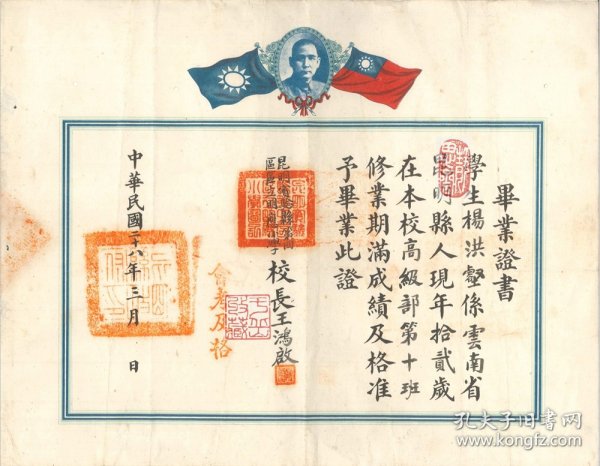 畢業證書
學生楊洪壑係雲南省
昆明縣人現年拾貳歲
在本校高級部第十班
修業期滿成績及格准
予畢業此證
校長王鴻啟
會考及格
中華民國二十八年三月 日
孔夫子旧书网
www.kongfz.com